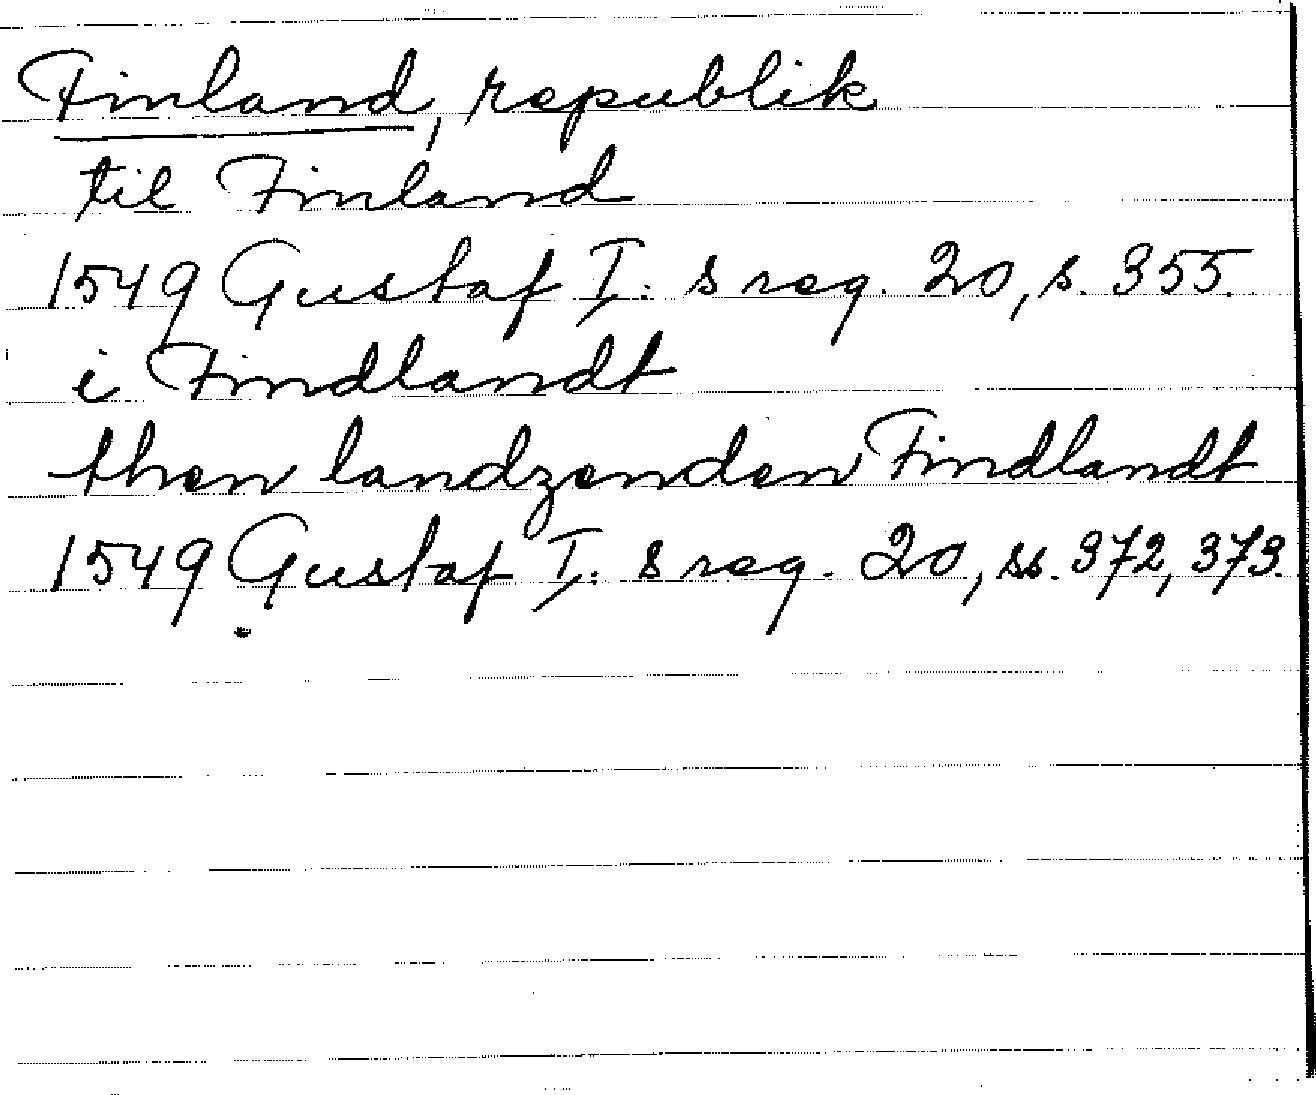 Finland, republik
til Finland
1549 Gustaf I:s reg. 20, s. 355.
i Findlandt
then landzenden Findlandt
1549 Gustaf I:s reg. 20, ss. 372, 373.